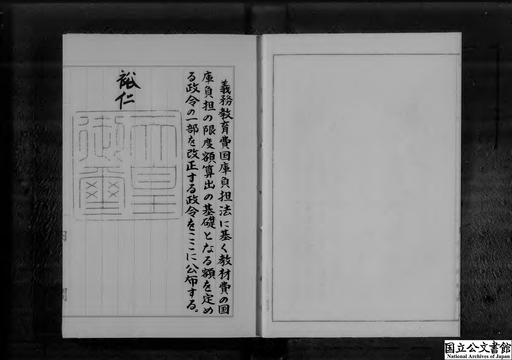 義務教育費国庫負担法に基く教材費の国
庫負担の限度額算出の基礎となる額を定め
る政令の一部を改正する政令をここに公布する。
裕仁
天皇
御璽
国立公文書館
National Archives of Japan